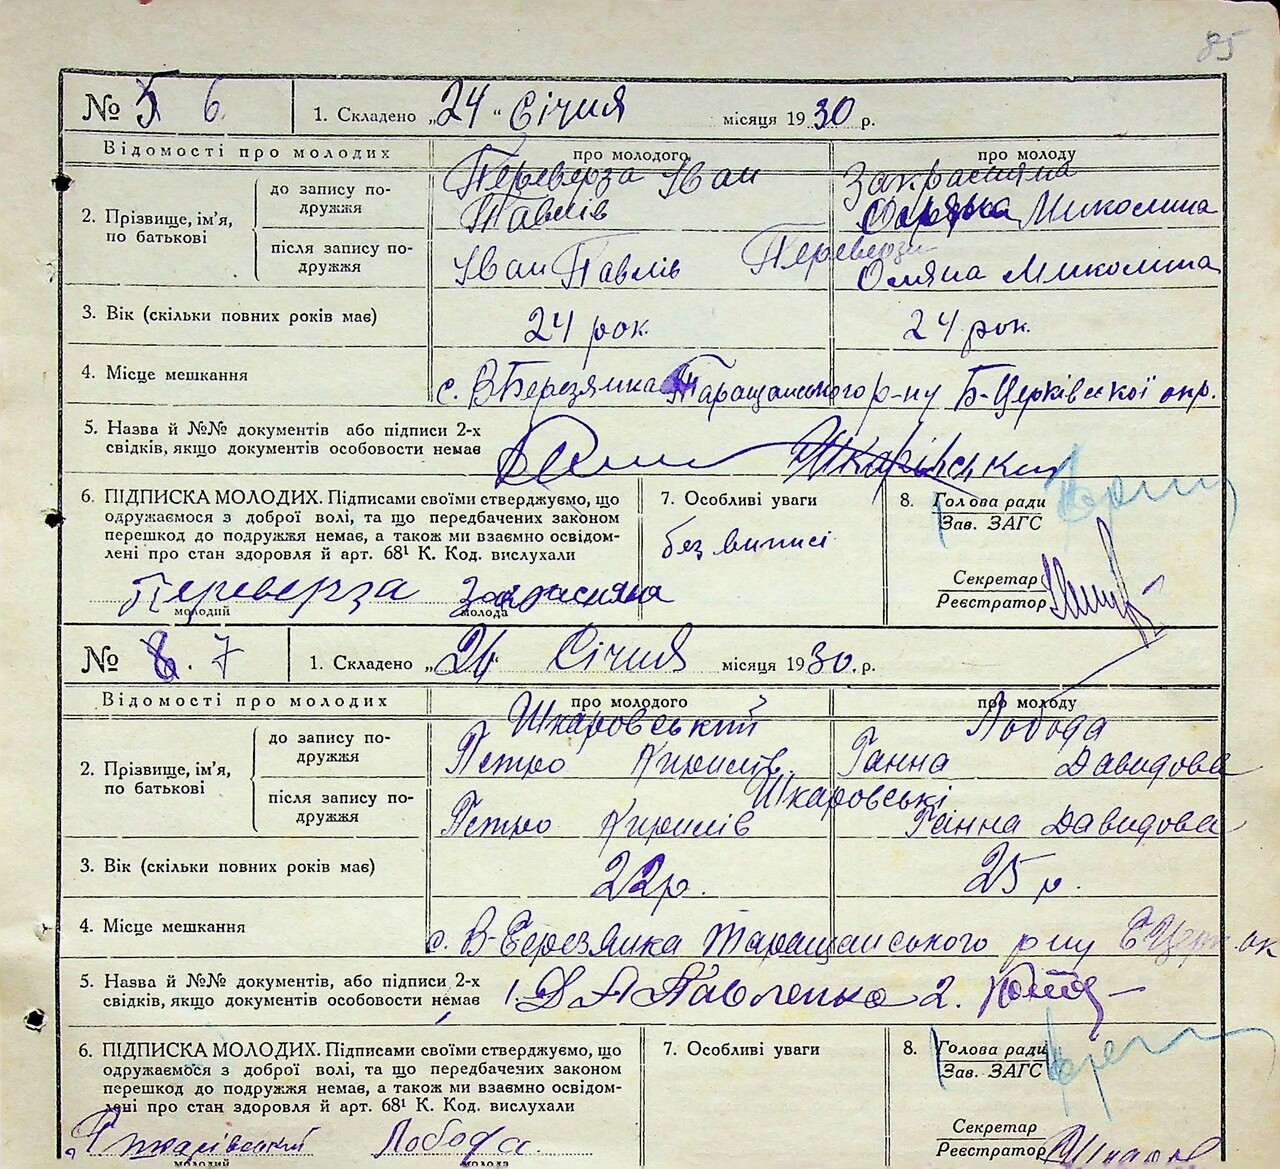 85
№ 5 6 1. Складено „24“ Січня місяця 1930 р.
Відомості про молодих про молодого про молоду
2. Прізвище, ім'я, по батькові
до запису подружжя Переверза Іван Павлів Закрасняна Миколина
після запису подружжя Переверзи
Іван Павлів Оляна Миколина
3. Вік (скільки повних років має) 24 рок. 24 рок.
4. Місце мешкання с. В Березянка Таращанського р-ну Б-Церківської окр.
5. Назва й №№ документів або підписи 2-х
свідків, якщо документів особовости немає Шкарівський
6. ПІДПИСКА МОЛОДИХ. Підписами своїми стверджуємо, що
одружаємося з доброї волі, та що передбачених законом
перешкод до подружжя немає, а також ми взаємно освідом-
лені про стан здоров'я й арт. 68¹ К. Код. вислухали
Переверза Закрасняна
молодий молода
7. Особливі уваги
без виписі
8. Голова ради
Зав. ЗАГС
Секретар
Реєстратор
№ 8. 7 1. Складено „26“ Січня місяця 1930 р.
Відомості про молодих про молодого про молоду
2. Прізвище, ім'я,
по батькові
до запису по-
дружжя
Шкаровський Лобода
Петро Кирилів Ганна Давидова
після запису по-
дружжя
Шкаровські
Петро Кирилів Ганна Давидова
3. Вік (скільки повних років має) 22 р. 25 р.
4. Місце мешкання с. В-Березянка Таращанського р-ну БЦерк. ок
5. Назва й №№ документів, або підписи 2-х
свідків, якщо документів особовости немає 1. Павленко 2.
6. ПІДПИСКА МОЛОДИХ. Підписами своїми стверджуємо, що
одружаємося з доброї волі, та що передбачених законом
перешкод до подружжя немає, а також ми взаємно освідом-
лені про стан здоров'я й арт. 68¹ К. Код. вислухали
Шкарівський Лобода.
молодий молода
7. Особливі уваги
8. Голова ради
Зав. ЗАГС
Секретар
Реєстратор